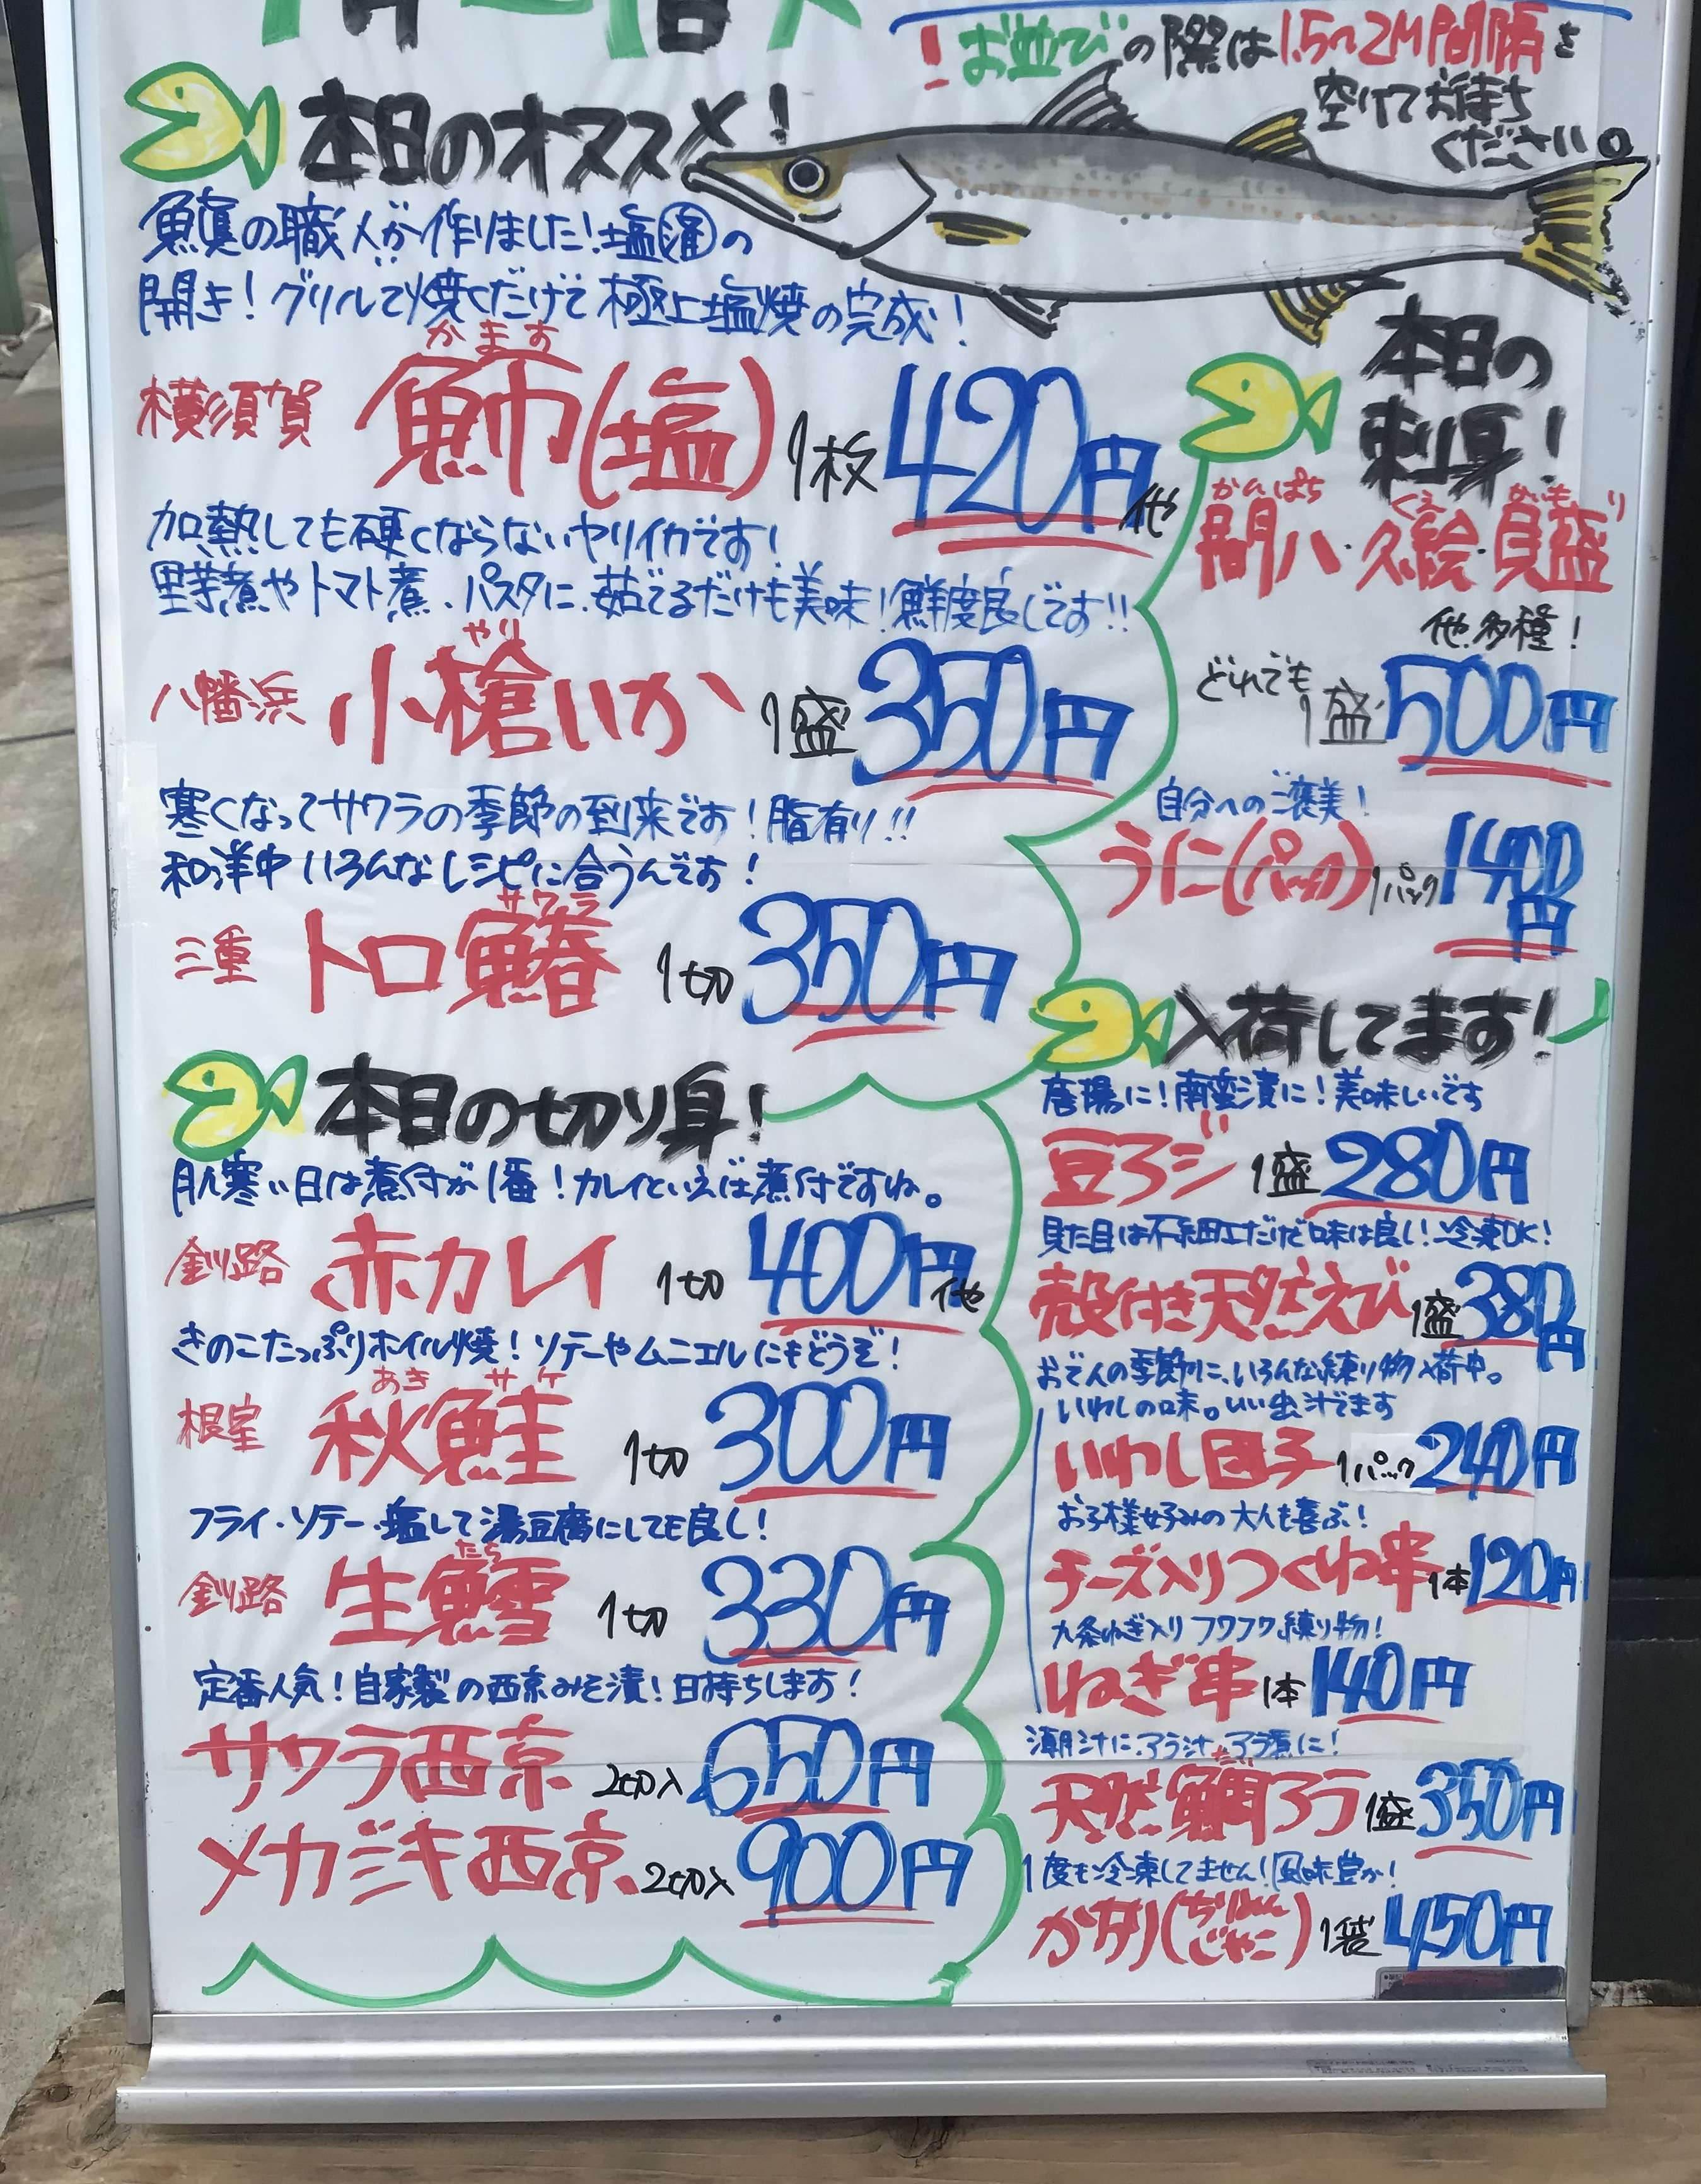 !お並びの際は1.5〜2M間隔を
空けてお待ち
ください。
本日のオススメ!
魚真の職人が作りました!塩の
開き!グリルで焼くだけで極上塩焼の完成!
かます
横須賀 魳(塩) 1枚 420円 他
加熱しても硬くならないヤリイカです!
里芋煮やトマト煮、パスタに、茹でるだけも美味!鮮度良しです!!
やり
八幡浜 小槍いか 1盛 350円
寒くなってサワラの季節の到来です!脂有り!!
和洋中いろんなレシピに合うんです!
サワラ
三重 トロ鰆 1切 350円
本日の切り身!
肌寒い日は煮付が1番!カレイといえば煮付ですね。
釧路 赤カレイ 1切 400円 他
きのこたっぷりホイル焼!ソテーやムニエルにもどうぞ!
あき サケ
根室 秋鮭 1切 300円
フライ・ソテー・塩して湯豆腐にしても良し!
たら
釧路 生鱈 1切 330円
定番人気!自家製の西京みそ漬!日持ちします!
サワラ西京 2切入 650円
メカジキ西京 2切入 900円
本日の
刺身!
かんぱち くえ かいもり
間八・久絵・貝盛
他多種!
どれでも
1盛 500円
自分へのご褒美!
うに(パック) 1パック 1400円
入荷してます!
唐揚に!南蛮漬に!美味しいです
豆アジ 1盛 280円
見た目は不細工だけど味は良し!冷凍OK!
殻付き天然えび 1盛 380円
おでんの季節に、いろんな練り物入荷中。
いわしの味。いい出汁でます
いわし団子 1パック 240円
お子様好みの大人も喜ぶ!
チーズ入りつくね串 1本 120円
九条ねぎ入りフワフワ練り物!
ねぎ串 1本 140円
潮汁に、アラ汁、アラ煮に!
たい
天然鯛アラ 1盛 350円
1度も冷凍してません!風味豊か!
かちり(ちりめんじゃこ) 1袋 450円